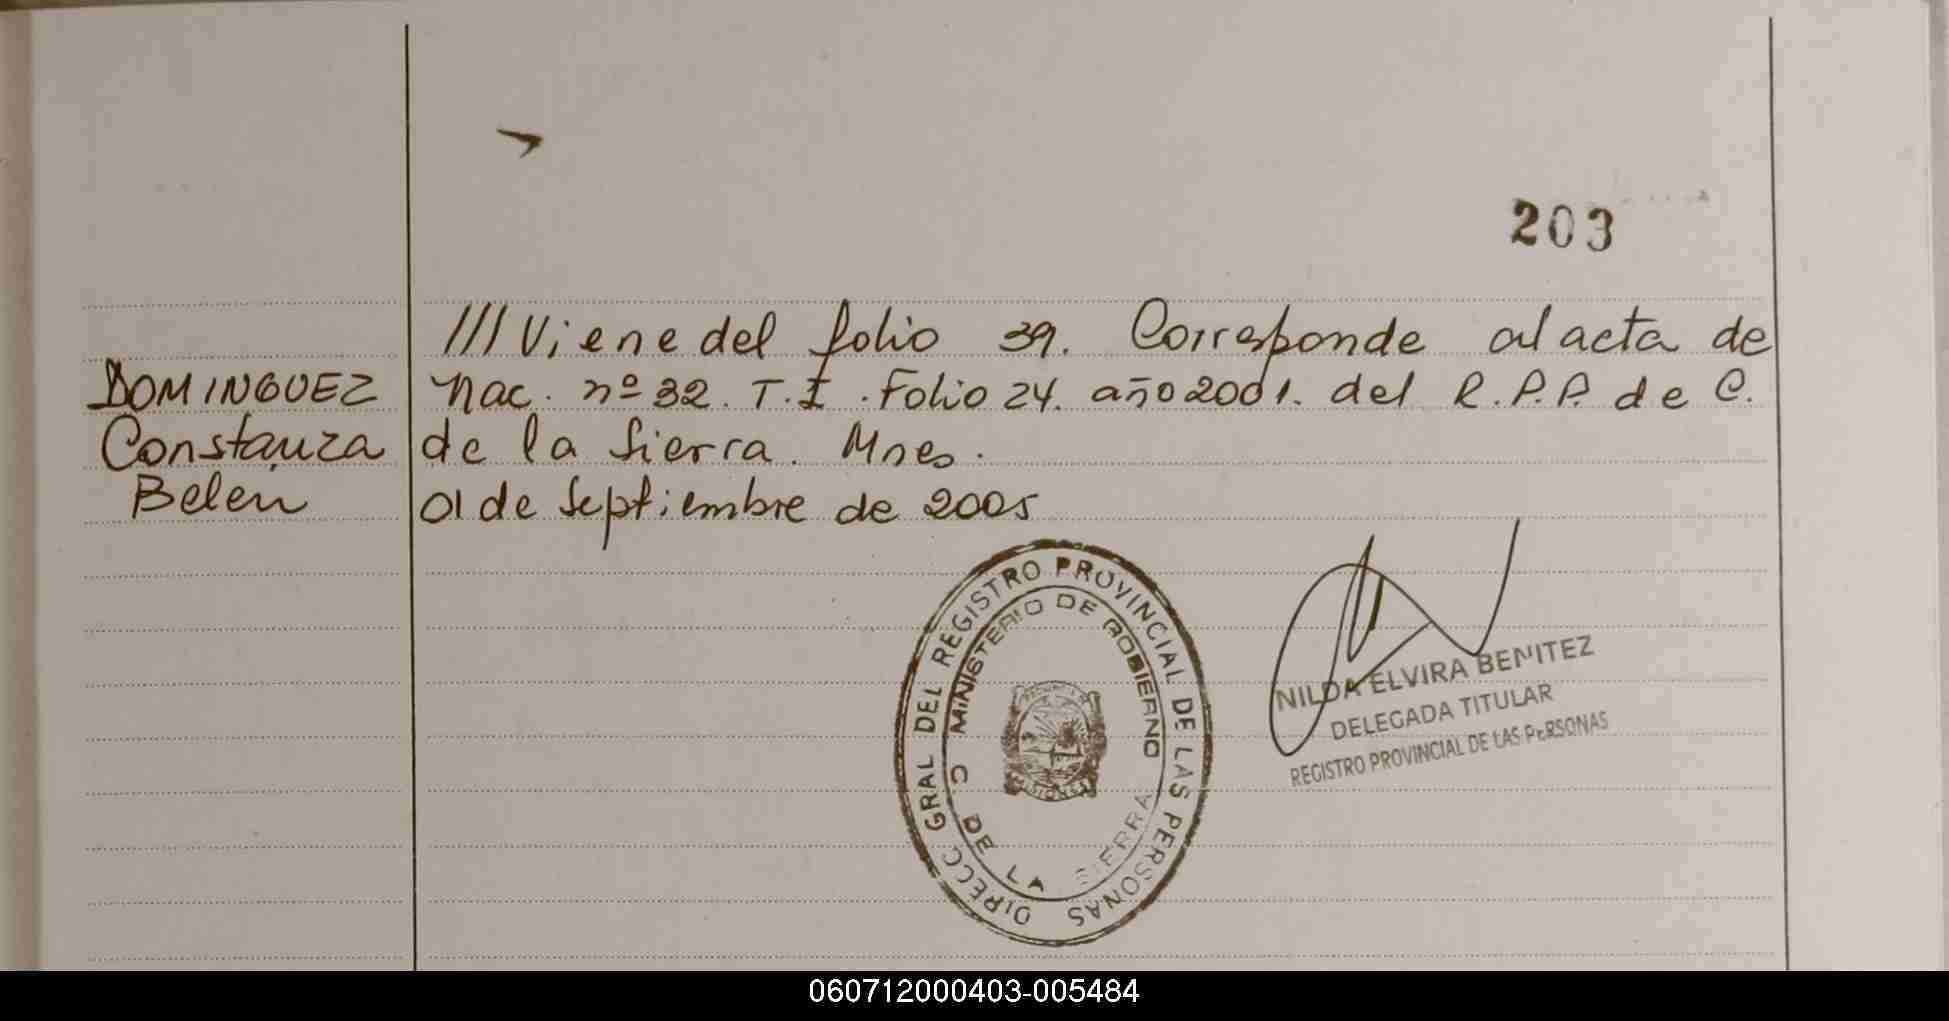 203
III Viene del folio 39. Corresponde al acta de
DOMINGUEZ nac. nº 32. T.I. Folio 24. año 2001. del R.P.P. de C.
Constanza de la Sierra. Mnes.
Belen 01 de Septiembre de 2005
DIRECC GRAL DEL REGISTRO PROVINCIAL DE LAS PERSONAS
MINISTERIO DE GOBIERNO
C. DE LA SIERRA
PROVINCIA
MISIONES
NILDA ELVIRA BENITEZ
DELEGADA TITULAR
REGISTRO PROVINCIAL DE LAS PERSONAS
060712000403-005484